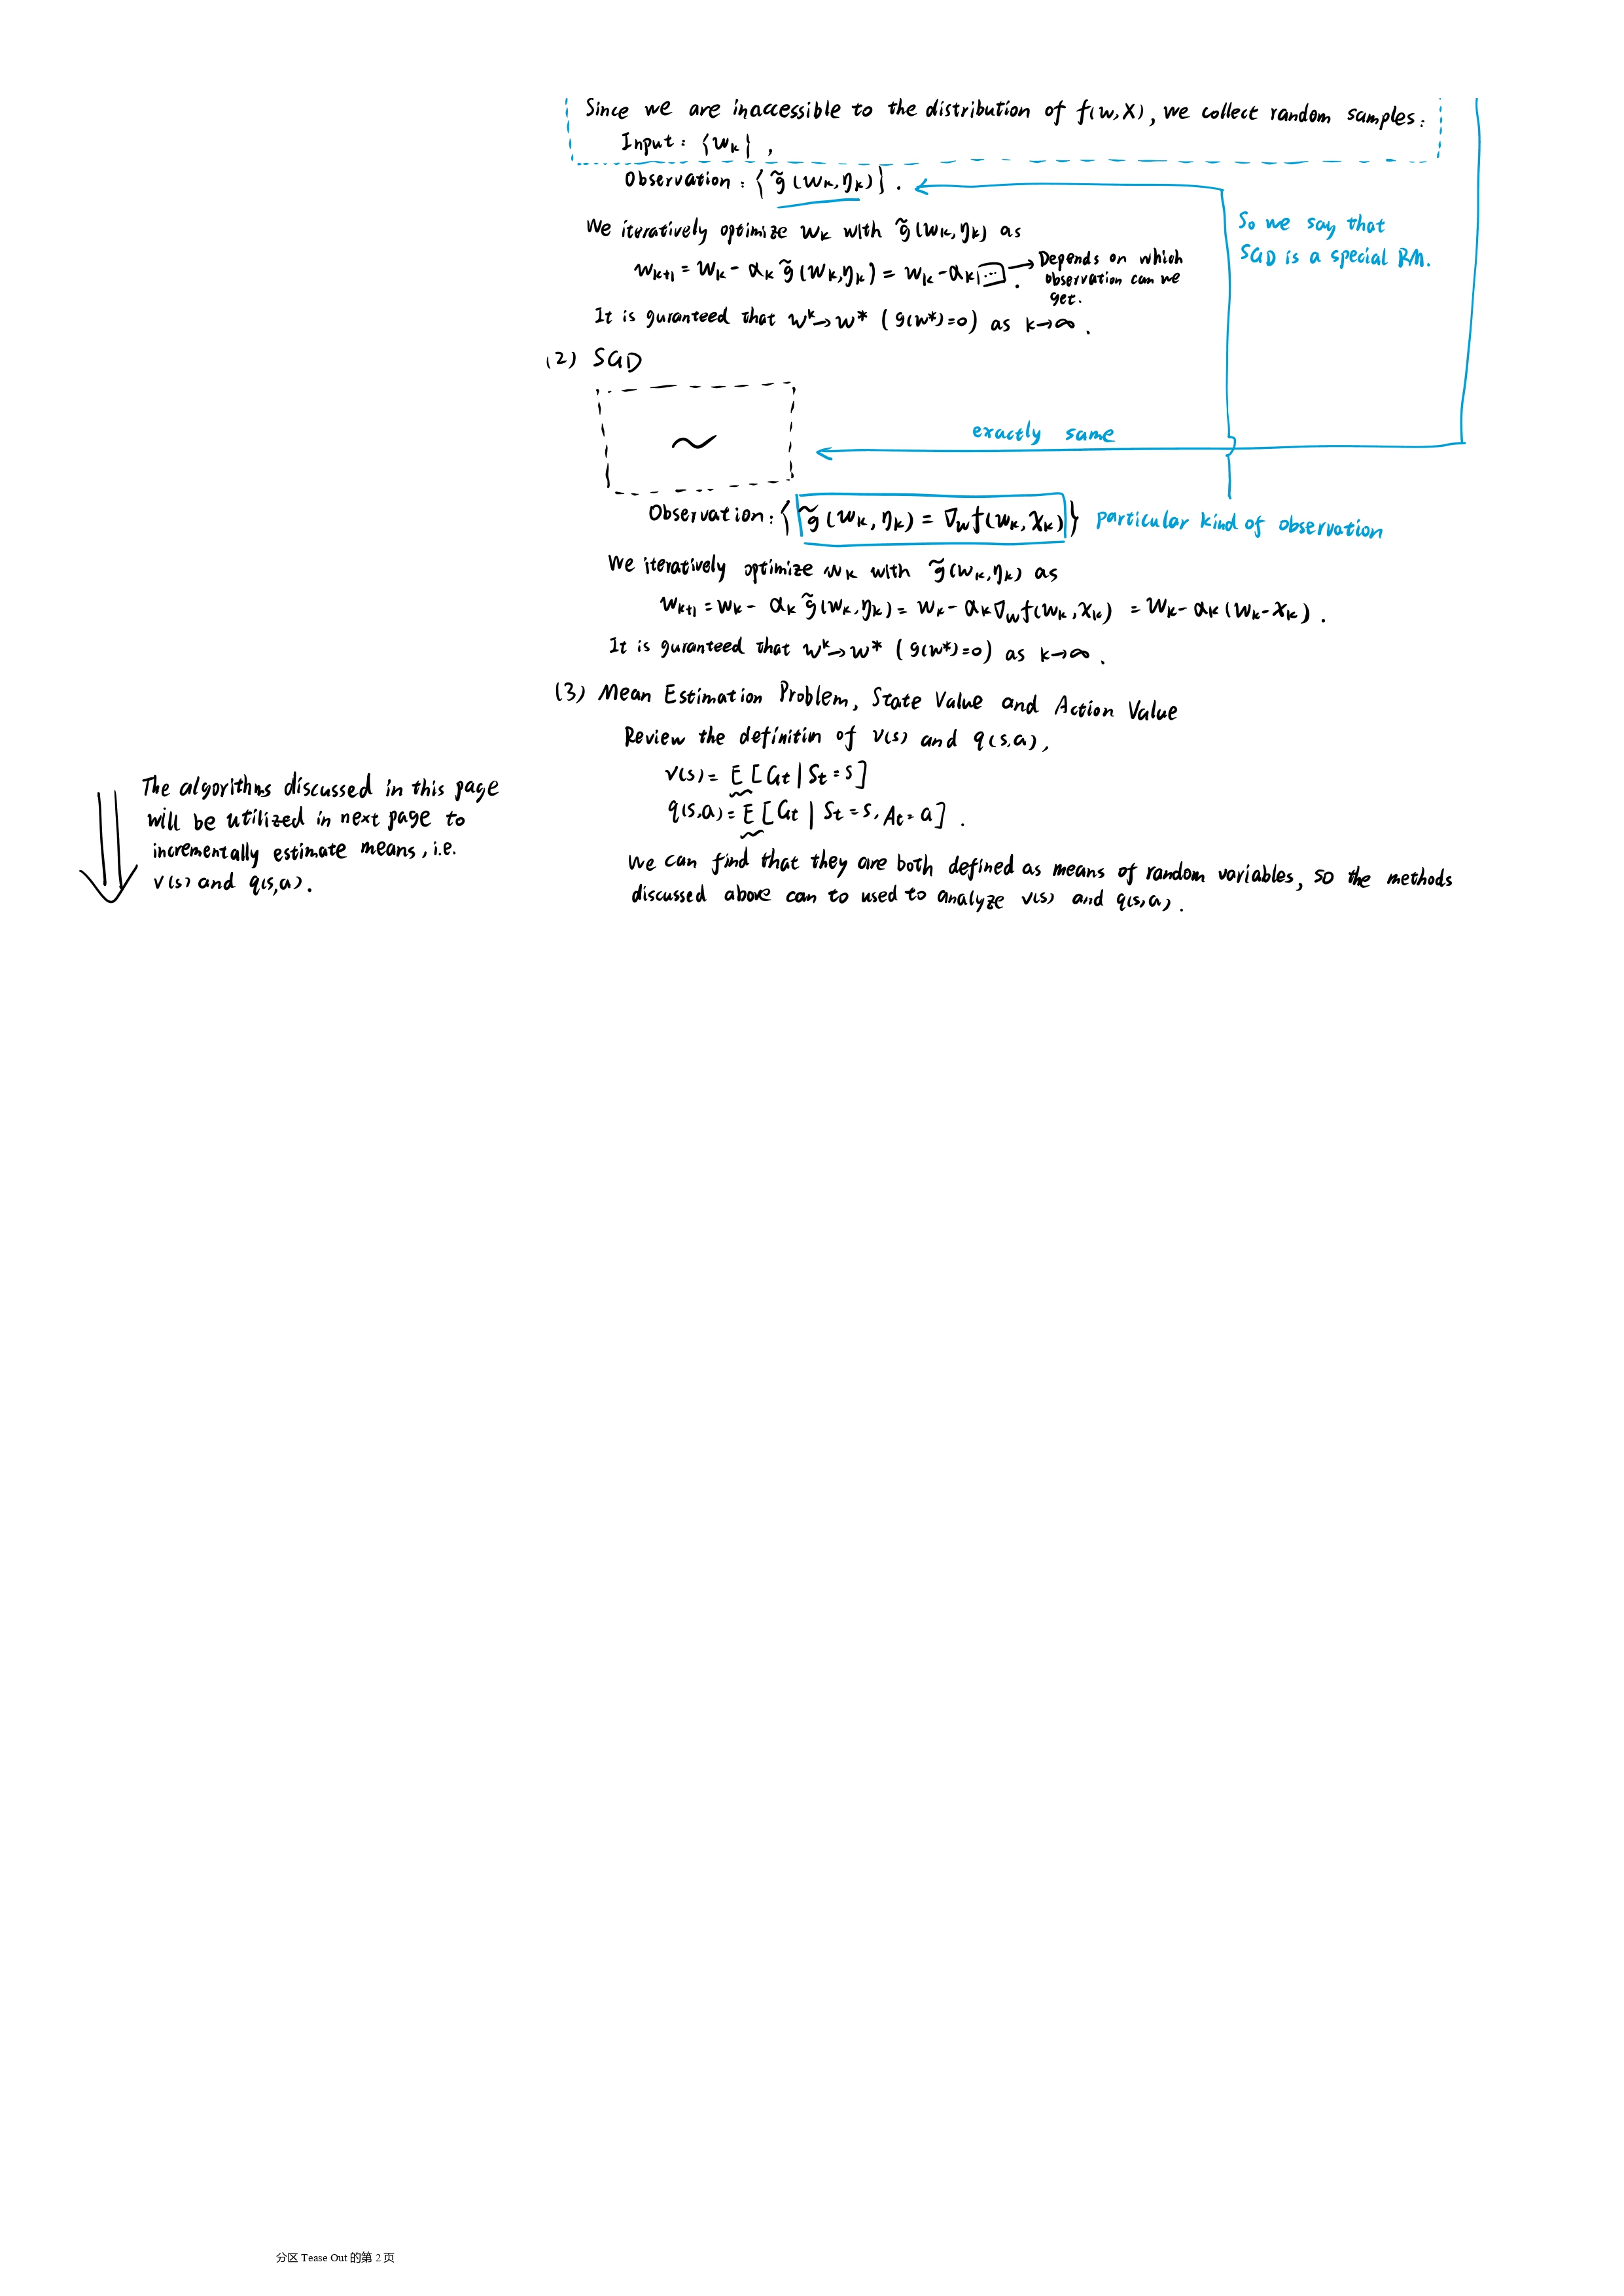 Since we are inaccessible to the distribution of f(w,X), we collect random samples:
Input: {wₖ},
Observation: {g̃(wₖ,ηₖ)}.
We iteratively optimize wₖ with g̃(wₖ,ηₖ) as
wₖ₊₁ = wₖ - αₖ g̃(wₖ,ηₖ) = wₖ - αₖ[...].
→ Depends on which
observation can we
get.
It is guranteed that wᵏ→w* (g(w*)=0) as k→∞.
So we say that
SGD is a special RM.
(2) SGD
~
exactly same
Observation: {g̃(wₖ,ηₖ) = ∇_w f(wₖ,xₖ)} particular kind of observation
We iteratively optimize wₖ with g̃(wₖ,ηₖ) as
wₖ₊₁ = wₖ - αₖ g̃(wₖ,ηₖ) = wₖ - αₖ∇_w f(wₖ,xₖ) = wₖ - αₖ(wₖ-xₖ).
It is guranteed that wᵏ→w* (g(w*)=0) as k→∞.
(3) Mean Estimation Problem, State Value and Action Value
Review the definitim of v(s) and q(s,a),
v(s) = E[Gt|St=s]
q(s,a) = E[Gt|St=s, At=a].
We can find that they are both defined as means of random variables, so the methods
discussed above can to used to analyze v(s) and q(s,a).
The algorithms discussed in this page
will be utilized in next page to
incrementally estimate means, i.e.
v(s) and q(s,a).
分区 Tease Out 的第 2 页